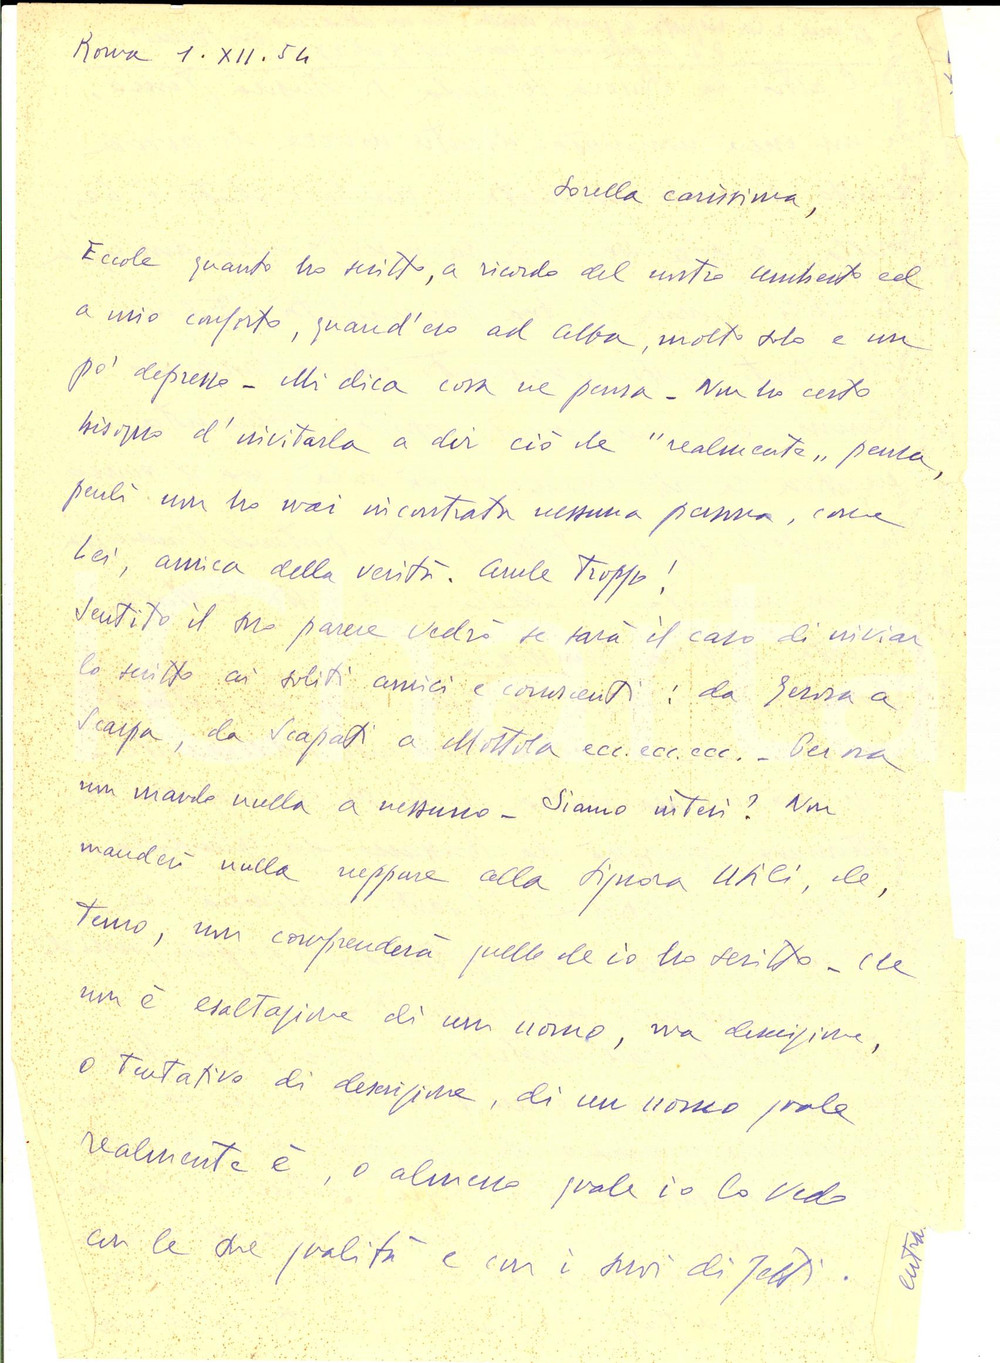 Roma 1.XII.54
Sorella carissima,
Eccole quanto ho scritto, a ricordo del nostro Umberto ed
a mio conforto, quand'ero ad Alba, molto solo e un
po' depresso - Mi dica cosa ne pensa - Non ho certo
bisogno d'invitarla a dir ciò che "realmente„ pensa,
perché non ho mai incontrata nessuna persona, come
Lei, amica della verità. Anche troppo!
Sentito il suo parere vedrò se sarà il caso di inviar
lo scritto ai soliti amici e conoscenti: da Gerosa a
Scarpa, da Scapati a Mottola ecc.ecc.ecc. - Per ora
non mando nulla a nessuno - Siamo intesi? Non
manderò nulla neppure alla Signora Utili, che,
temo, non comprenderà quello che io ho scritto - Che
non è esaltazione di un uomo, ma descrizione,
o tentativo di descrizione, di un uomo quale
realmente è, o almeno quale io lo vedo
con le sue qualità e con i suoi difetti.